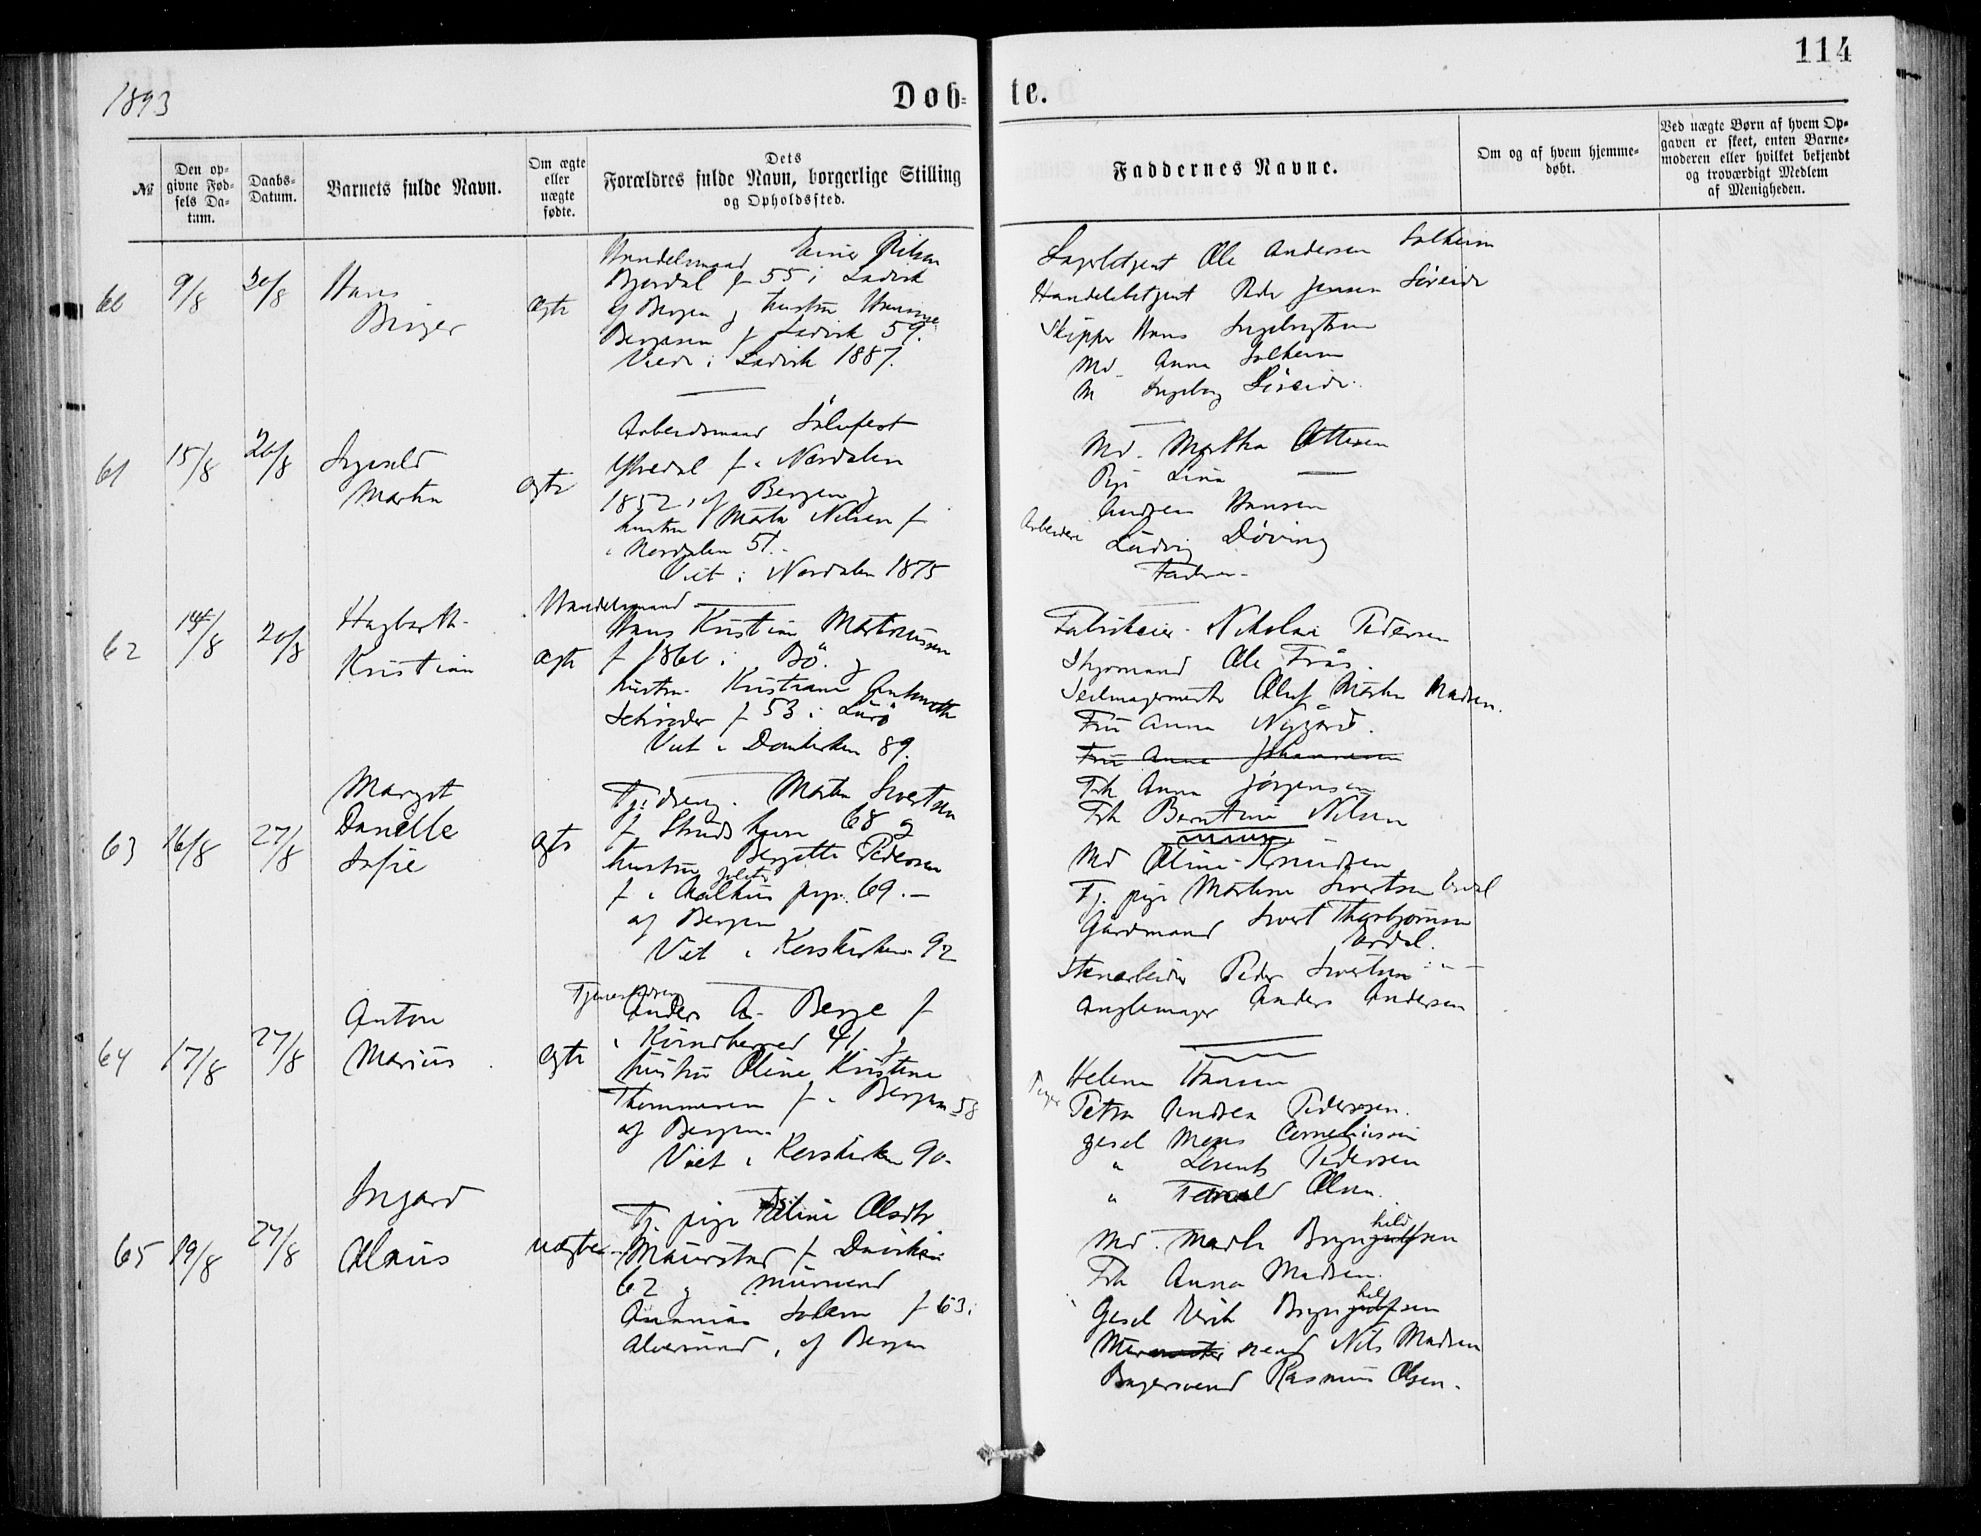 114
1893
Døb- te.
No
Den op-
givne Fød-
sels Da-
tum.
Daabs-
Datum.
Barnets fulde Navn.
Om ægte
eller
uægte
fødte.
Dets
Forældres fulde Navn, borgerlige Stilling
og Opholdssted.
Faddernes Navne.
Om og af hvem hjemme-
døbt.
Ved uægte Børn af hvem Op-
gaven er skeet, enten Barne-
moderen eller hvilket bekjendt
og troværdigt Medlem
af Menigheden.
60 9/8 20/8 Hans
Birger
ægte
Handelsmand Einer Nilsen
Bjordal f 55 i Ladvik
af Bergen g hustru
f Ladvik 59.
Viede i Ladvik 1887.
Ole Andersen Solheim
Handelsbetjent Peder Jensen Söreide
Skipper Hans Ingebrigtsen
Md Anna Solheim
M Ingeborg Söreide.
61 15/8 20/8
Martin
ægte
Arbeidsmand Sölvfest
Ytredal f i Nordalen
1852, af Bergen g
hustru Marta Nilsen f
i Nordalen 51.
Viet i Nordalen 1875
Md. Martha Ottesen
Pige Lina —
Andreas Hansen
Arbeidere Ludvig Döving
Faderen
62 14/8 20/8 Hagbarth
Kristian
ægte
Handelsmand
Hans Kristian Martinussen
f 1860 i Bö. g
hustru Kristiane
Schröder f 53 i Lurö
Viet i Domkirken 89.
Fabrikeier Nikolai Pedersen
Styrmand Ole Frös.
Seilmagermester Oluf Martin Madsen.
Fru Anna Nygård.
Fru Anna Johannesen
Frk Anna Jörgensen
Frk Berntine Nilsen
63 16/8 27/8 Margit
Danelle
Sofie
ægte
Tj.dreng. Martin Sivertsen
f Strudshavn 68 g
hustru Bergitte Pedersen
f i Aalhus 69.—
af Bergen
Viet i Korskirken 92
Md Oline Knudsen
Tj. pige Martine Sivertsen Årdal
Gårdmand Sivert Thorbjörnsen
Årdal.
Stenarbeider Peder Sivertsen
Anders Andersen
64 17/8 27/8 Anton
Marius
ægte
Anders A. Berge f
i Kvindherred 41. g
hustru Oline Kristine
Thommesen f i Bergen 58
af Bergen.
Viet i Korskirken 90.
Piger Helene Hansen
Petra Andrea Pedersen.
gesel Mons Corneliussen
" Lorents Pedersen
" Olsen.
65 19/8 27/8 Ingard
Olaus
uægte
Tj. pige Oline Olsdtr
Maurstad f Daviken
62 g mursvend
Ananias Solem f 63 i
Alversund, af Bergen
Md. Marta Bryngelfsen
hild
Frk Anna Madsen.
Gesel Erik Bryngelfsen
hild
svend Nils Madsen
Bagersvend Rasmus Olsen.